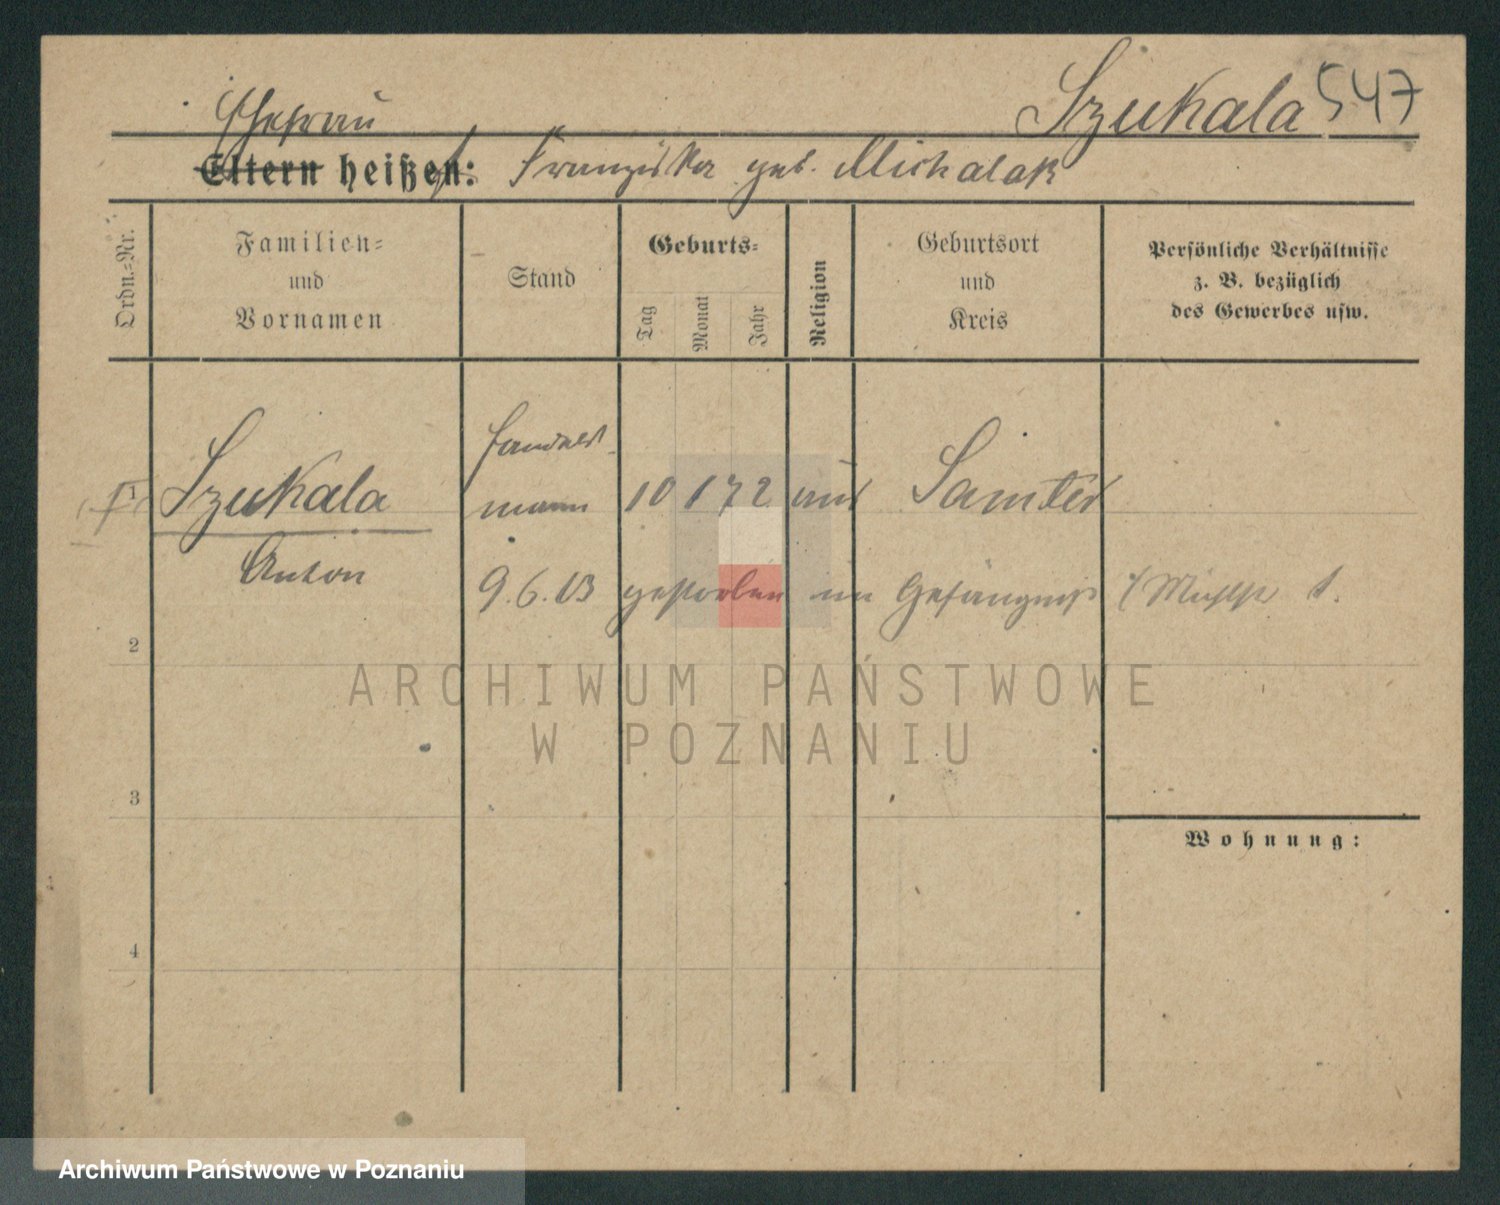 Szukala 547
Ehefrau
Eltern heißen: Franziska geb. Michalak
Ordn.-Nr.
Familien-
und
Vornamen
Stand
Geburts-
Tag
Monat
Jahr
Religion
Geburtsort
und
Kreis
Persönliche Verhältnisse
z. B. bezüglich
des Gewerbes usw.
Szukala
Anton
Handels-
mann
10 1 72
Samter
9.6.13 gestorben im Gefängniß
2
3
4
Wohnung:
ARCHIWUM PAŃSTWOWE
W POZNANIU
Archiwum Państwowe w Poznaniu